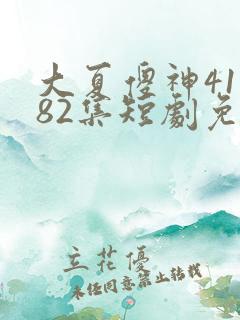 大夏傻神41
82集短劇免
立花優
未经同意禁止转载